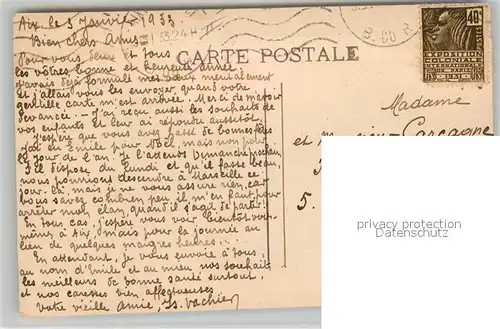 Aix le 3 Janvier 1933
Bien chers Amis,
CARTE POSTALE
40c
EXPOSITION
COLONIALE
INTERNATIONALE
PARIS
1931
Pour vous deux et tous
les vôtres bonne et heureuse année.
J'avais déjà formulé mes vœux mentalement
et j'allais vous les envoyer quand votre
gentille carte m'est arrivée. Merci de m'avoir
devancée. J'ai reçu aussi les souhaits de
vos enfants et leur ai répondu aussitôt.
J'espère que vous avez passé de bonnes fêtes
J'ai eu Emile pour Noël, mais non pour
le jour de l'an. Je l'attends Dimanche prochain
S'il dispose du lundi et qu'il fasse beau,
nous pourrions descendre à Marseille ce
jour-là, mais je ne vous assure rien, car
vous savez combien peu il m'en faut pour
arrêter mon élan, quand il s'agit de partir!
En tous cas, j'espère vous voir bientôt vous-
mêmes à Aix, mais pour la journée au
lieu de quelques maigres heures...
En attendant, je vous envoie à tous,
au nom d'Emile et au mien nos souhaits
les meilleurs de bonne santé surtout,
et nos caresses bien affectueuses
Votre vieille Amie, Is. Vachier
Madame
et Monsieur Carcagne
5.
privacy protection
Datenschutz